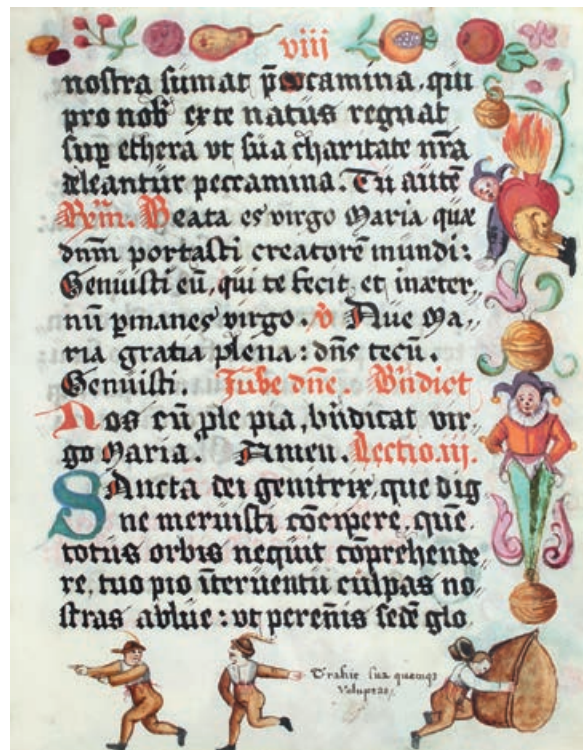 viii
nostra sumat peccamina, qui
pro nob' ex te natus regnat
sup ethera vt sua charitate nr̃a
deleantur peccamina. Tu autẽ
Rẙm. Beata es virgo Maria quæ
dnm portasti creatorẽ mundi:
Genuisti eũ, qui te fecit et inæter-
nũ pmanes virgo. ℣ Aue Ma,,
ria gratia plena: dñs tecũ.
Genuisti. Jube dñe. Bñdict
Nos cũ ple pia, bñdicat vir
go Maria. Amen. Lectio.iii.
SAncta dei genitrix, que dig
ne meruisti cõcipere, quẽ
totus orbis nequit cõprehende
re, tuo pio ĩteruentu culpas no
stras ablue: vt perẽnis sedẽ glo
Trahit sua quemqs
Voluptas